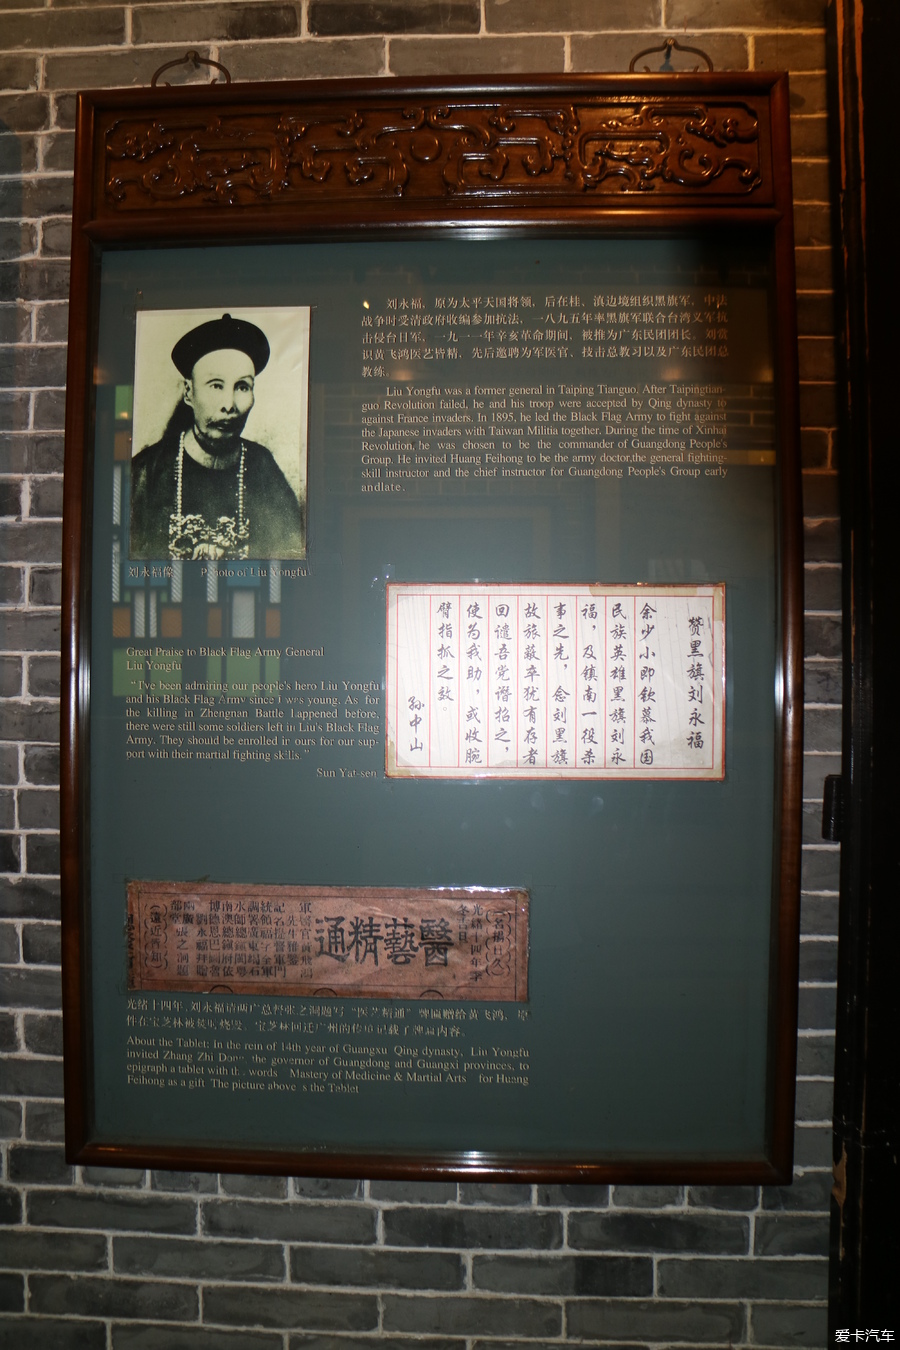 刘永福，原为太平天国将领，后在桂、滇边境组织黑旗军，中法
战争时受清政府收编参加抗法，一八九五年率黑旗军联合台湾义军抗
击侵台日军，一九一一年辛亥革命期间，被推为广东民团团长。刘赏
识黄飞鸿医艺皆精，先后邀聘为军医官、技击总教习以及广东民团总
教练。
Liu Yongfu was a former general in Taiping Tianguo. After Taipingtian-
guo Revolution failed, he and his troop were accepted by Qing dynasty to
against France invaders. In 1895, he led the Black Flag Army to fight against
the Japanese invaders with Taiwan Militia together. During the time of Xinhai
Revolution, he was chosen to be the commander of Guangdong People's
Group. He invited Huang Feihong to be the army doctor,the general fighting-
skill instructor and the chief instructor for Guangdong People's Group early
andlate.
刘永福像 Photo of Liu Yongfu
赞黑旗刘永福
余少小即钦慕我国
民族英雄黑旗刘永
福，及镇南一役杀
事之先，念刘黑旗
故旅散卒犹有存者
回谴吾党潜招之，
使为我助，或收腕
臂指抓之效。
孙中山
Great Praise to Black Flag Army General
Liu Yongfu
"I've been admiring our people's hero Liu Yongfu
and his Black Flag Army since I was young. As for
the killing in Zhengnan Battle happened before,
there were still some soldiers left in Liu's Black Flag
Army. They should be enrolled in ours for our sup-
port with their martial fighting skills."
Sun Yat-sen
光緒十四年季
冬吉日
醫藝精通
光绪十四年，刘永福请两广总督张之洞题写“医艺精通”牌匾赠给黄飞鸿，原
件在宝芝林被焚时烧毁，宝芝林回迁广州的传单记载了牌匾内容。
About the Tablet: In the rein of 14th year of Guangxu Qing dynasty, Liu Yongfu
invited Zhang Zhi Dong the governor of Guangdong and Guangxi provinces, to
epigraph a tablet with the words Mastery of Medicine & Martial Arts for Huang
Feihong as a gift The picture above is the Tablet
爱卡汽车